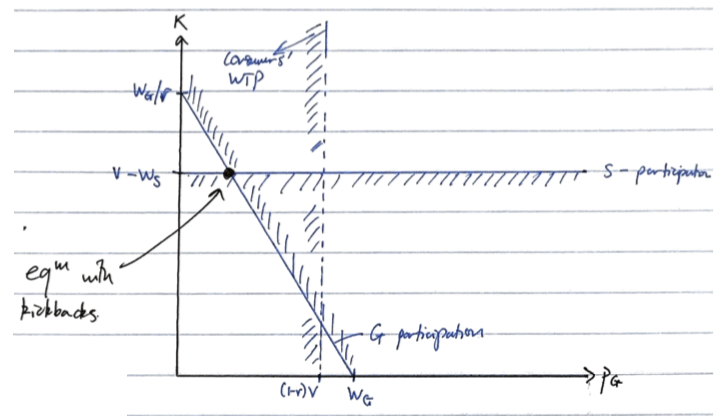 K
consumers'
WTP
W_G/r
V-W_S
S-participation
eq^m with
kickbacks
G participation
(1-r)V
W_G
P_G